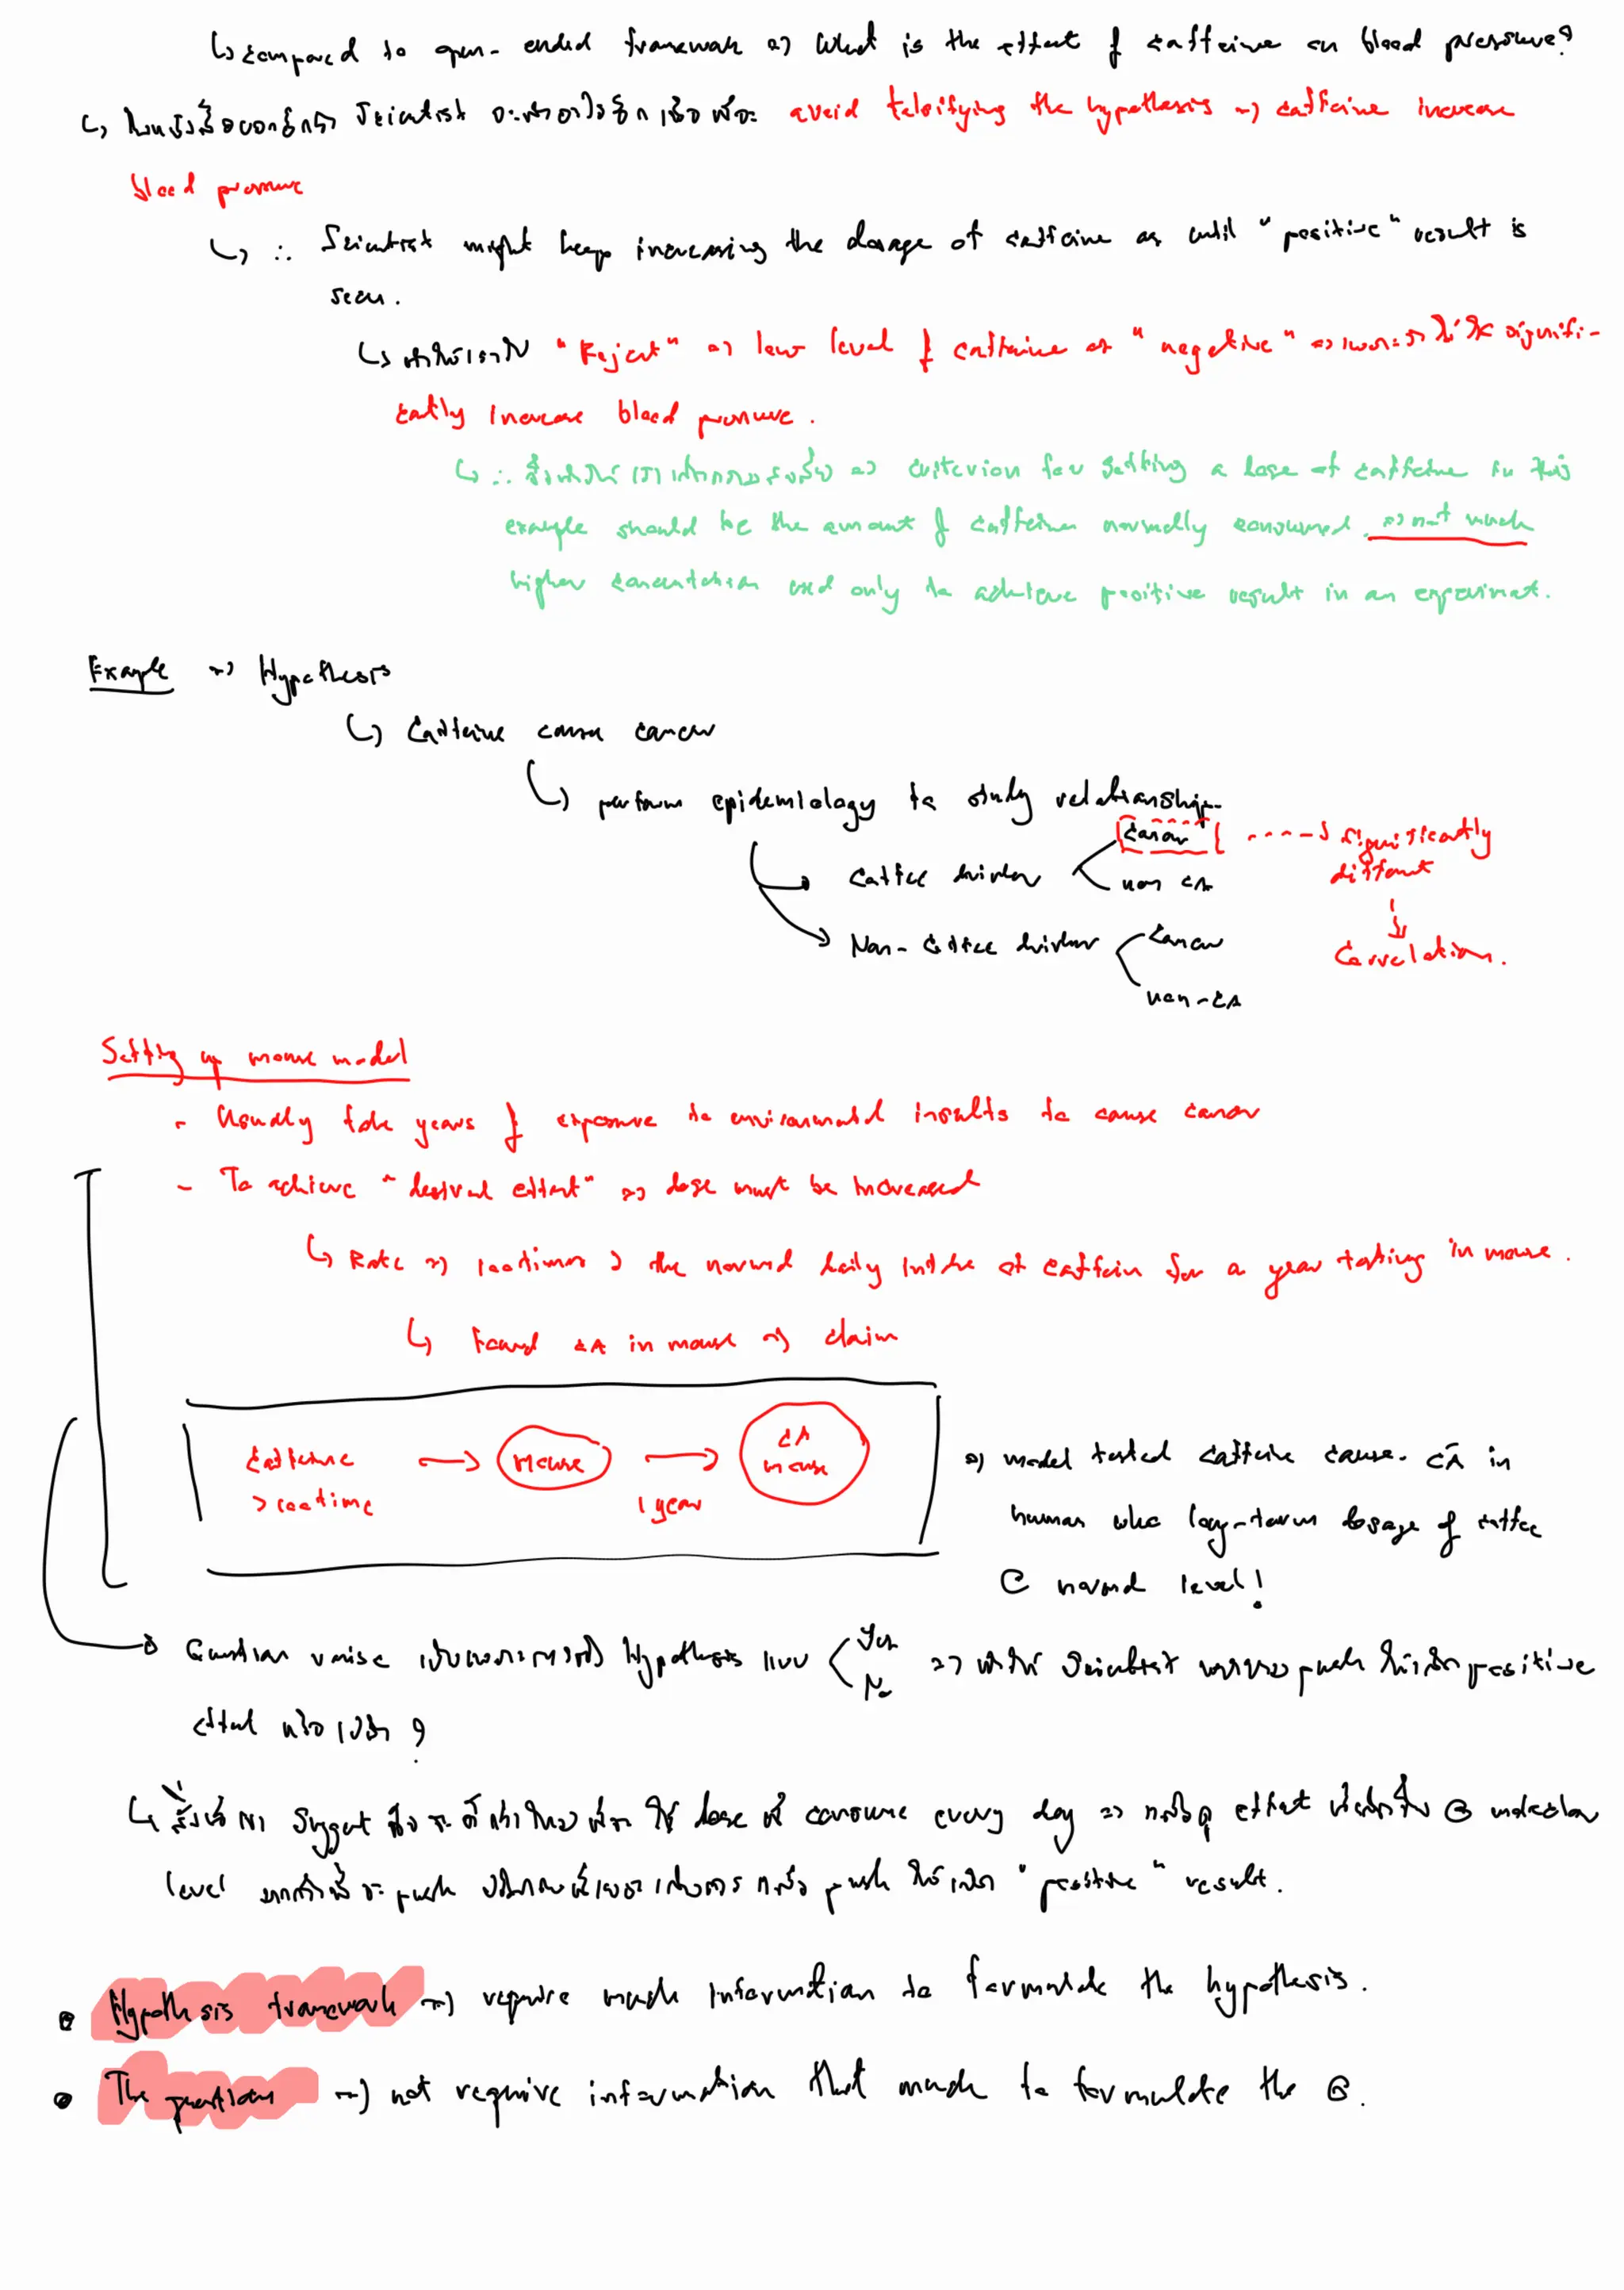 ↳ compared to open-ended framework => What is the effect of caffeine on blood pressure?
↳ Scientist avoid falsifying the hypothesis => caffeine increase
blood pressure
↳ ∴ Scientist might keep increasing the dosage of caffeine as until "positive" result is
seen.
↳ "Reject" => low level of caffeine as "negative" => เพราะว่า ไม่ได้ signifi-
cantly increase blood pressure.
↳ ∴ => criterion for setting a dose of caffeine in this
example should be the amount of caffeine normally consumed => not much
higher concentration used only to achieve positive result in an experiment.
Example => Hypothesis
↳ Caffeine cause cancer
↳ perform epidemiology to study relationship
Coffee drinker
cancer
non CA
significantly
different
Correlation.
Non-coffee drinker
cancer
non-CA
Setting up mouse model
- Usually take years of exposure to environmental insults to cause cancer
- To achieve "desired effect" => dose must be increased
↳ Rate => 100 times > the normal daily intake of caffein for a year testing in mouse.
↳ Found CA in mouse => claim
Caffeine
>100 time
→ Mouse → 1 year
CA
mouse
=> model tested caffeine cause CA in
human who long-term dosage of coffee
@ normal level!
Question raise เป็นเพราะการตั้ง Hypothesis แบบ Yes
No
=> ทำให้ Scientist พยายาม push ให้เกิด positive
effect หรือเปล่า ?
↳ suggest dose ที่ consume every day => effect @ molecular
level push push ให้เกิด "positive" result.
• Hypothesis framework => require much information to formulate the hypothesis.
• The question => not require information that much to formulate the Q.